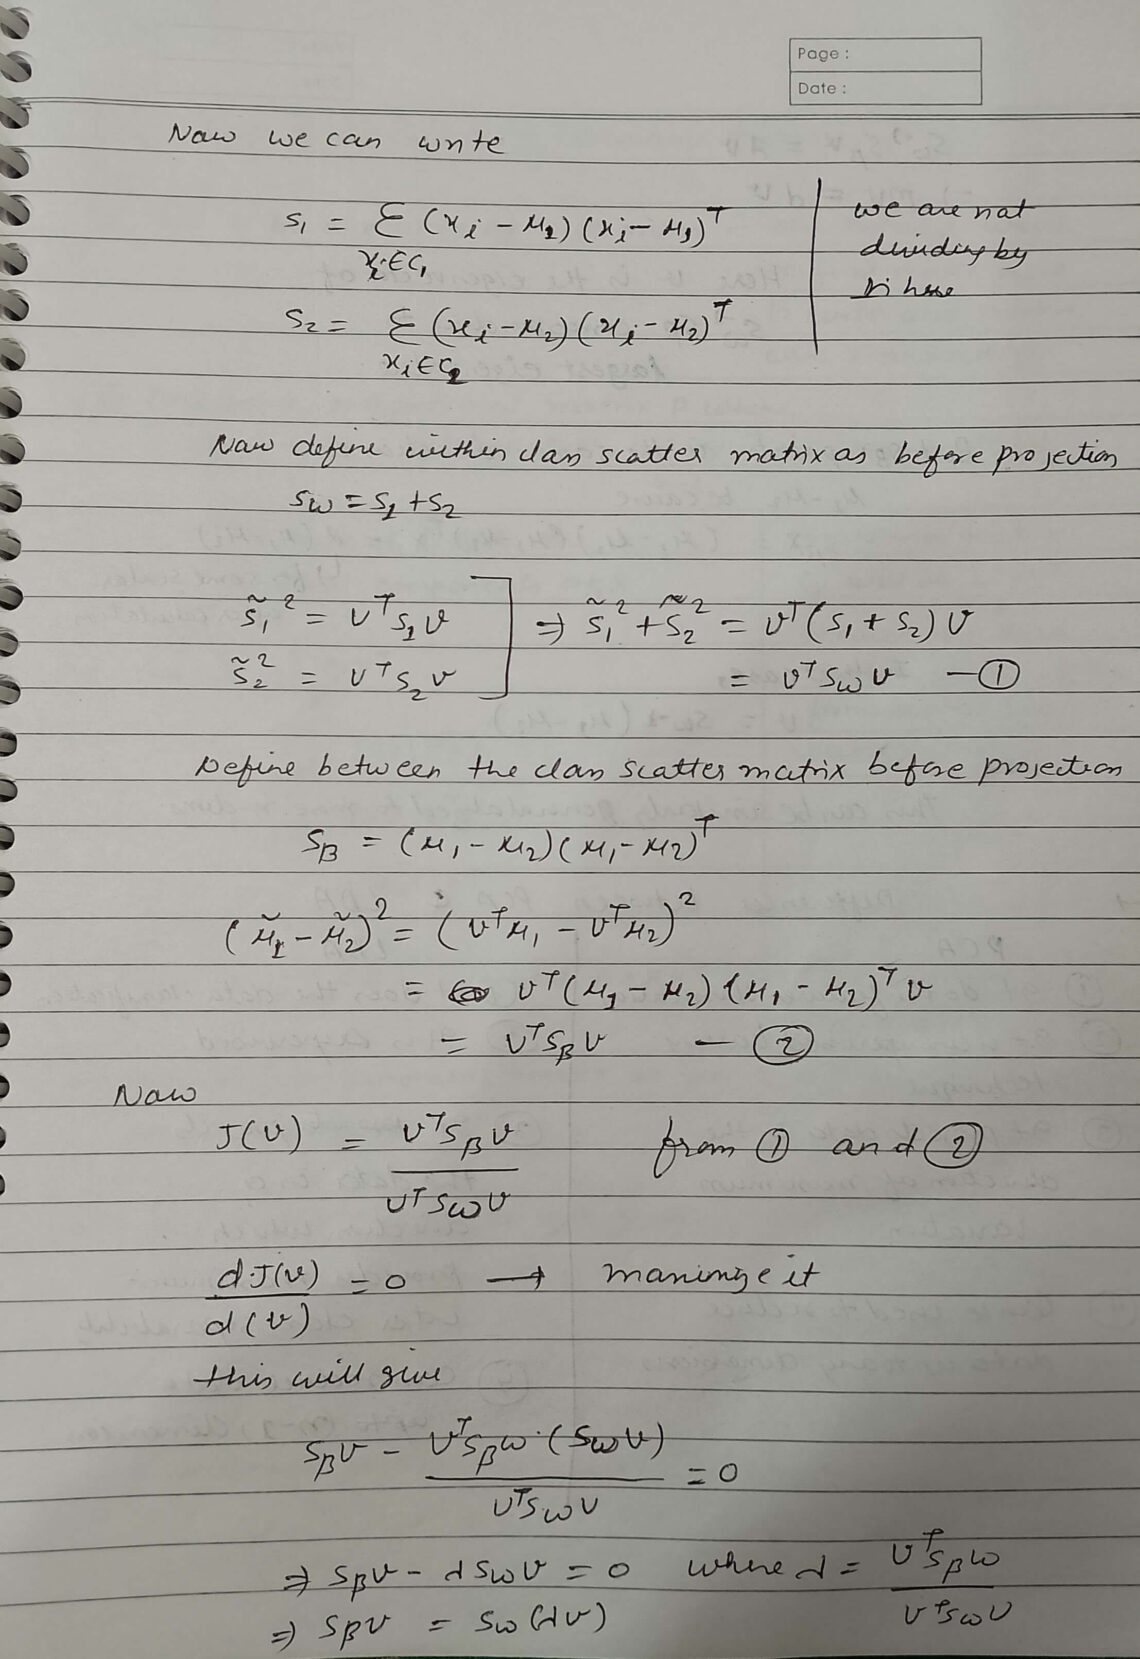 Page :
Date :
Now we can write
S₁ = Σ (xᵢ - μ₁) (xᵢ - μ₁)ᵀ
xᵢ ∈ C₁
we are not
dividing by
ni here
S₂ = Σ (xᵢ - μ₂) (xᵢ - μ₂)ᵀ
xᵢ ∈ C₂
Now define within class scatter matrix as before projection
Sω = S₁ + S₂
S̃₁² = vᵀ S₁ v
S̃₂² = vᵀ S₂ v
⇒ S̃₁² + S̃₂² = vᵀ (S₁ + S₂) v
= vᵀ Sω v — ①
Define between the class scatter matrix before projection
Sβ = (μ₁ - μ₂) (μ₁ - μ₂)ᵀ
(μ̃₁ - μ̃₂)² = (vᵀμ₁ - vᵀμ₂)²
= vᵀ (μ₁ - μ₂) (μ₁ - μ₂)ᵀ v
= vᵀ Sβ v — ②
Now
J(v) = vᵀ Sβ v / vᵀ Sω v from ① and ②
dJ(v) / d(v) = 0 → maximize it
this will give
Sβ v - vᵀ Sβ ω · (Sω v) / vᵀ Sω v = 0
⇒ Sβ v - λ Sω v = 0 where λ = vᵀ Sβ ω / vᵀ Sω v
⇒ Sβ v = Sω (λv)